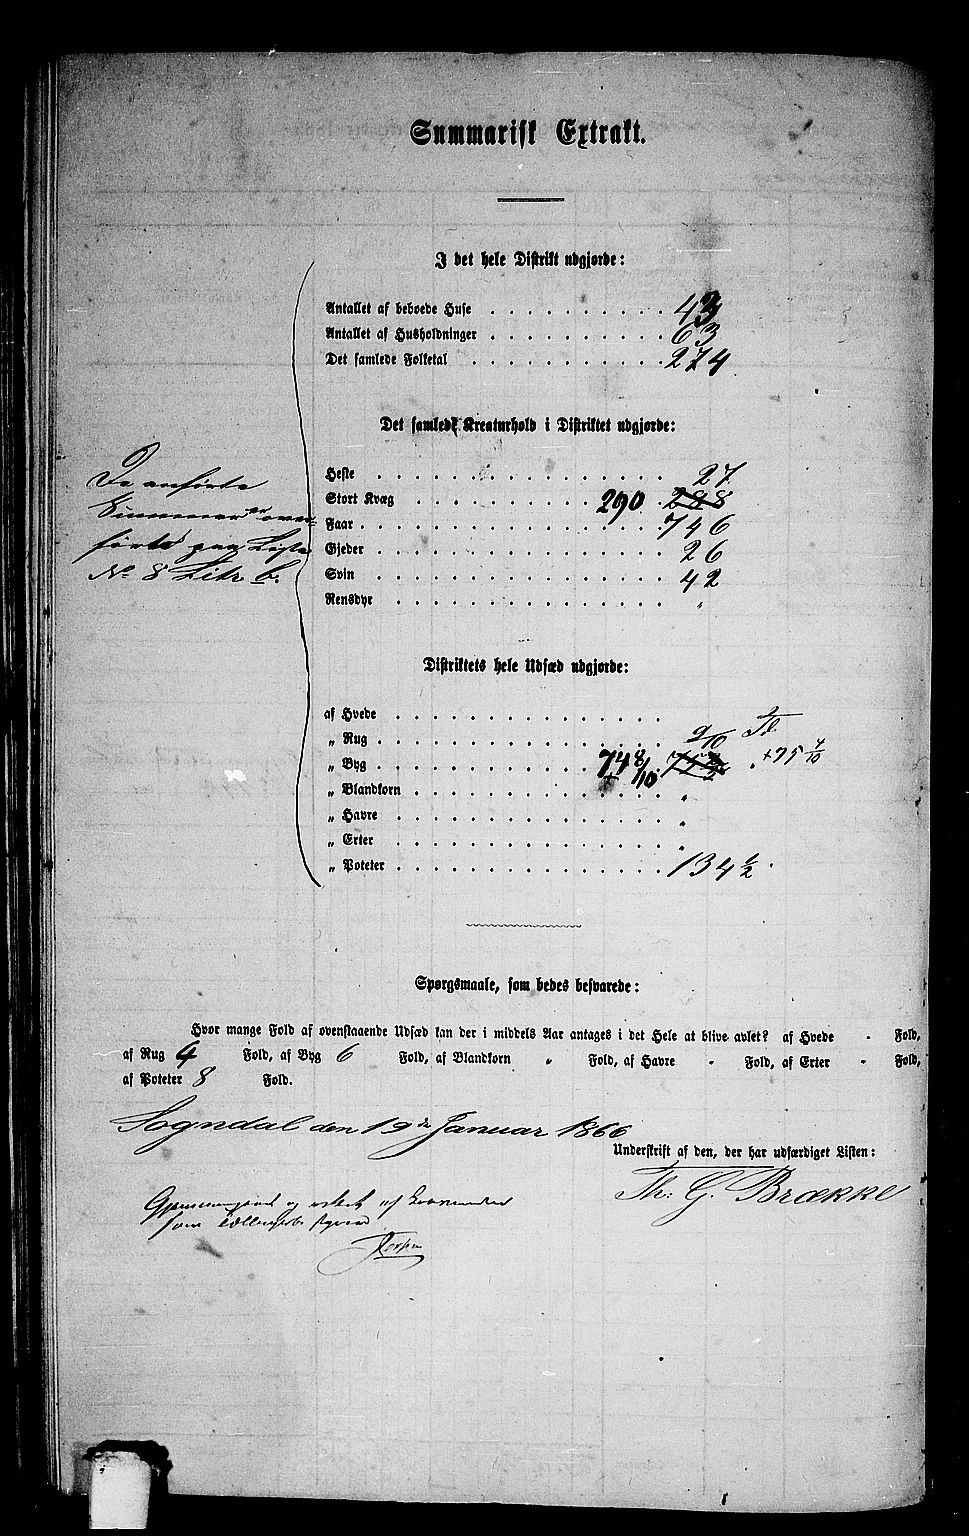 Summarisk Extrakt.
I det hele Distrikt udgjorde:
Antallet af beboede Huse . . . . . . . . . . 43
Antallet af Husholdninger . . . . . . . . . . 63
Det samlede Folketal . . . . . . . . . . 274
Det samlede Kreaturhold i Distriktet udgjorde:
Heste . . . . . . . . . . 27
Stort Kvæg . . . . . . . . . . 290 288
Faar . . . . . . . . . . 746
Gjeder . . . . . . . . . . 26
Svin . . . . . . . . . . 42
Rensdyr . . . . . . . . . . "
De anførte
Summer er over=
førte paa Liste
No 8 Litr b.
Distriktets hele Udsæd udgjorde:
af Hvede . . . . . . . . . .
„ Rug . . . . . . . . . . 9/10 Td
„ Byg . . . . . . . . . . 74 8/10 +75 4/10
„ Blandkorn . . . . . . . . . . "
„ Havre . . . . . . . . . . "
„ Erter . . . . . . . . . . "
„ Poteter . . . . . . . . . . 134 1/2
Spørgsmaale, som bedes besvarede:
Hvor mange Fold af ovenstaaende Udsæd kan der i middels Aar antages i det Hele at blive avlet? af Hvede " Fold,
af Rug 4 Fold, af Byg 6 Fold, af Blandkorn " Fold, af Havre " Fold, af Erter " Fold,
af Poteter 8 Fold.
Sogndal den 19de Januar 1866
Underskrift af den, der har udfærdiget Listen:
Th: G. Brække
og rettet af
som